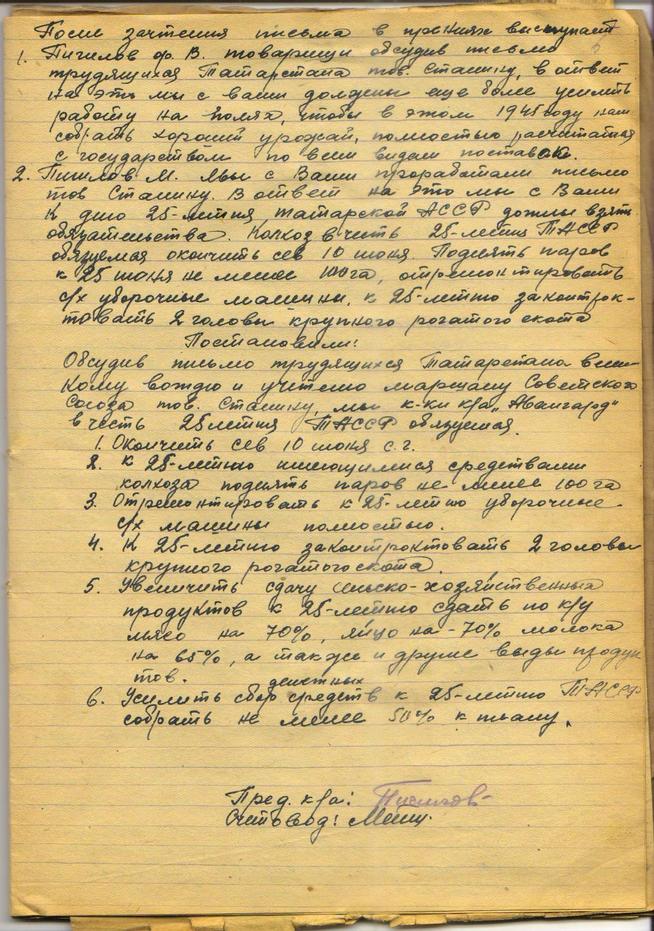 После зачтения письма в прениях выступает
1. Пигилов ф. В. товарищи обсудив письмо
трудящихся Татарстана тов. Сталину, в ответ
на это мы с вами должны еще более усилить
работу на полях, чтобы в этом 1945 году нам
собрать хороший урожай, полностью расчитатся
с государством по всем видам поставок.
2. М. Мы с Вами проработали письмо
тов Сталину. В ответ на это мы с Вами
к дню 25-летия Татарской АССР должны взять
обязательства. Колхоз в честь 25-летия ТАССР
обязуемся окончить сев 10 июня. Поднять паров
к 25 июня не менее 100 га, отремонтировать
с/х уборочные машины, к 25-летию законтрок-
товать 2 головы крупного рогатого скота
Постановили:
Обсудив письмо трудящихся Татарстана вели-
кому вождю и учителю маршалу Советского
Союза тов. Сталину, мы к-ки к/а „Авангард"
в честь 25летия ТАССР обязуемся.
1. Окончить сев 10 июня с.г.
2. к 25-летию имеющимися средствами
колхоза поднять паров не менее 100 га
3. Отремонтировать к 25-летию уборочные
с/х машины полностью.
4. К 25-летию законтроктовать 2 головы
крупного рогатого скота.
5. Увеличить сдачу сельско-хозяйственных
продуктов к 25-летию сдать по к/у
мясо на 70%, яйцо на - 70% молока
на 65%, а также и друие виды продук
тов.
денежных
6. Усилить сбор средств к 25-летию ТАССР
собрать не менее 50% к плану.
Пред. к/а:
Счетовод: